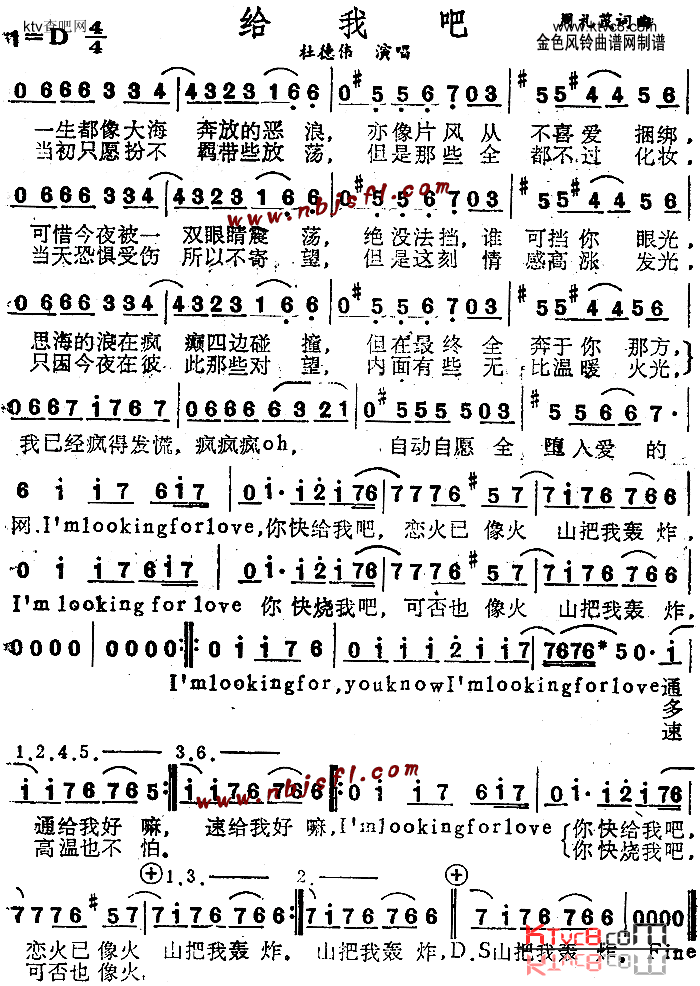 ktv杏吧网
1=D 4/4
给我吧
周礼茂词曲
www.ktvc8.com
金色风铃曲谱网制谱
杜德伟 演唱
0 666 334 | 4323 166 | 0 #5 56 703 | 55#4 456 |
一生都像大海 奔放的恶 浪, 亦像片风从 不喜爱 捆绑,
当初只愿扮不 羁带些放 荡, 但是那些全 都不过 化妆,
0 666 334 | 4323 166 | 0 #5 56 703 | 55#4 456 |
www.nbjsfl.com
可惜今夜被一 双眼睛震 荡, 绝没法挡,谁 可挡你 眼光,
当天恐惧受伤 所以不寄 望, 但是这刻情 感高涨 发光,
0 666 334 | 4323 166 | 0 #5 56 703 | 55#4 456
思海的浪在疯 癫四边碰 撞, 但在最终全 奔于你 那方,
只因今夜在彼 此那些对 望, 内面有些无 比温暖 火光,
0667 i767 | 0666 6321 | 0#555 503 | #55667·
我已经疯得发慌,疯疯疯oh, 自动自愿全 堕入爱的
6 i i7 6i7 | 0i·i2i76 | 7776 #57 | 7i76 766
网.I'mlookingforlove,你快给我吧, 恋火已像火 山把我轰炸,
0 i i7 6i7 | 0i·i2i76 | 7776 #57 | 7i76 766
I'm looking for love 你快烧我吧, 可否也像火 山把我轰 炸,
0000 | 0000 :‖: 0 i i 7 6 | 0 i i i 2 i i7 | 7676* 50· i
I'mlookingfor,youknowI'mlookingforlove通
多
速
1.2.4.5. 3.6.
ii76 765 :‖ ii76 766 ‖: 0 i i7 6i7 | 0i·i2i76
www.nbjsfl.com
通给我好 嘛, 速给我好 嘛,I'mlookingforlove 你快给我吧,
高温也不 怕。 你快烧我吧,
1.3. 2.
7776 #57 | 7i76 766 :‖ 7i76 766 ‖ 7i76 766 | 0000 ‖
恋火已像火 山把我轰 炸。山把我轰 炸,D.S山把我轰 炸。Fine
可否也像火,
Ktvc8.com